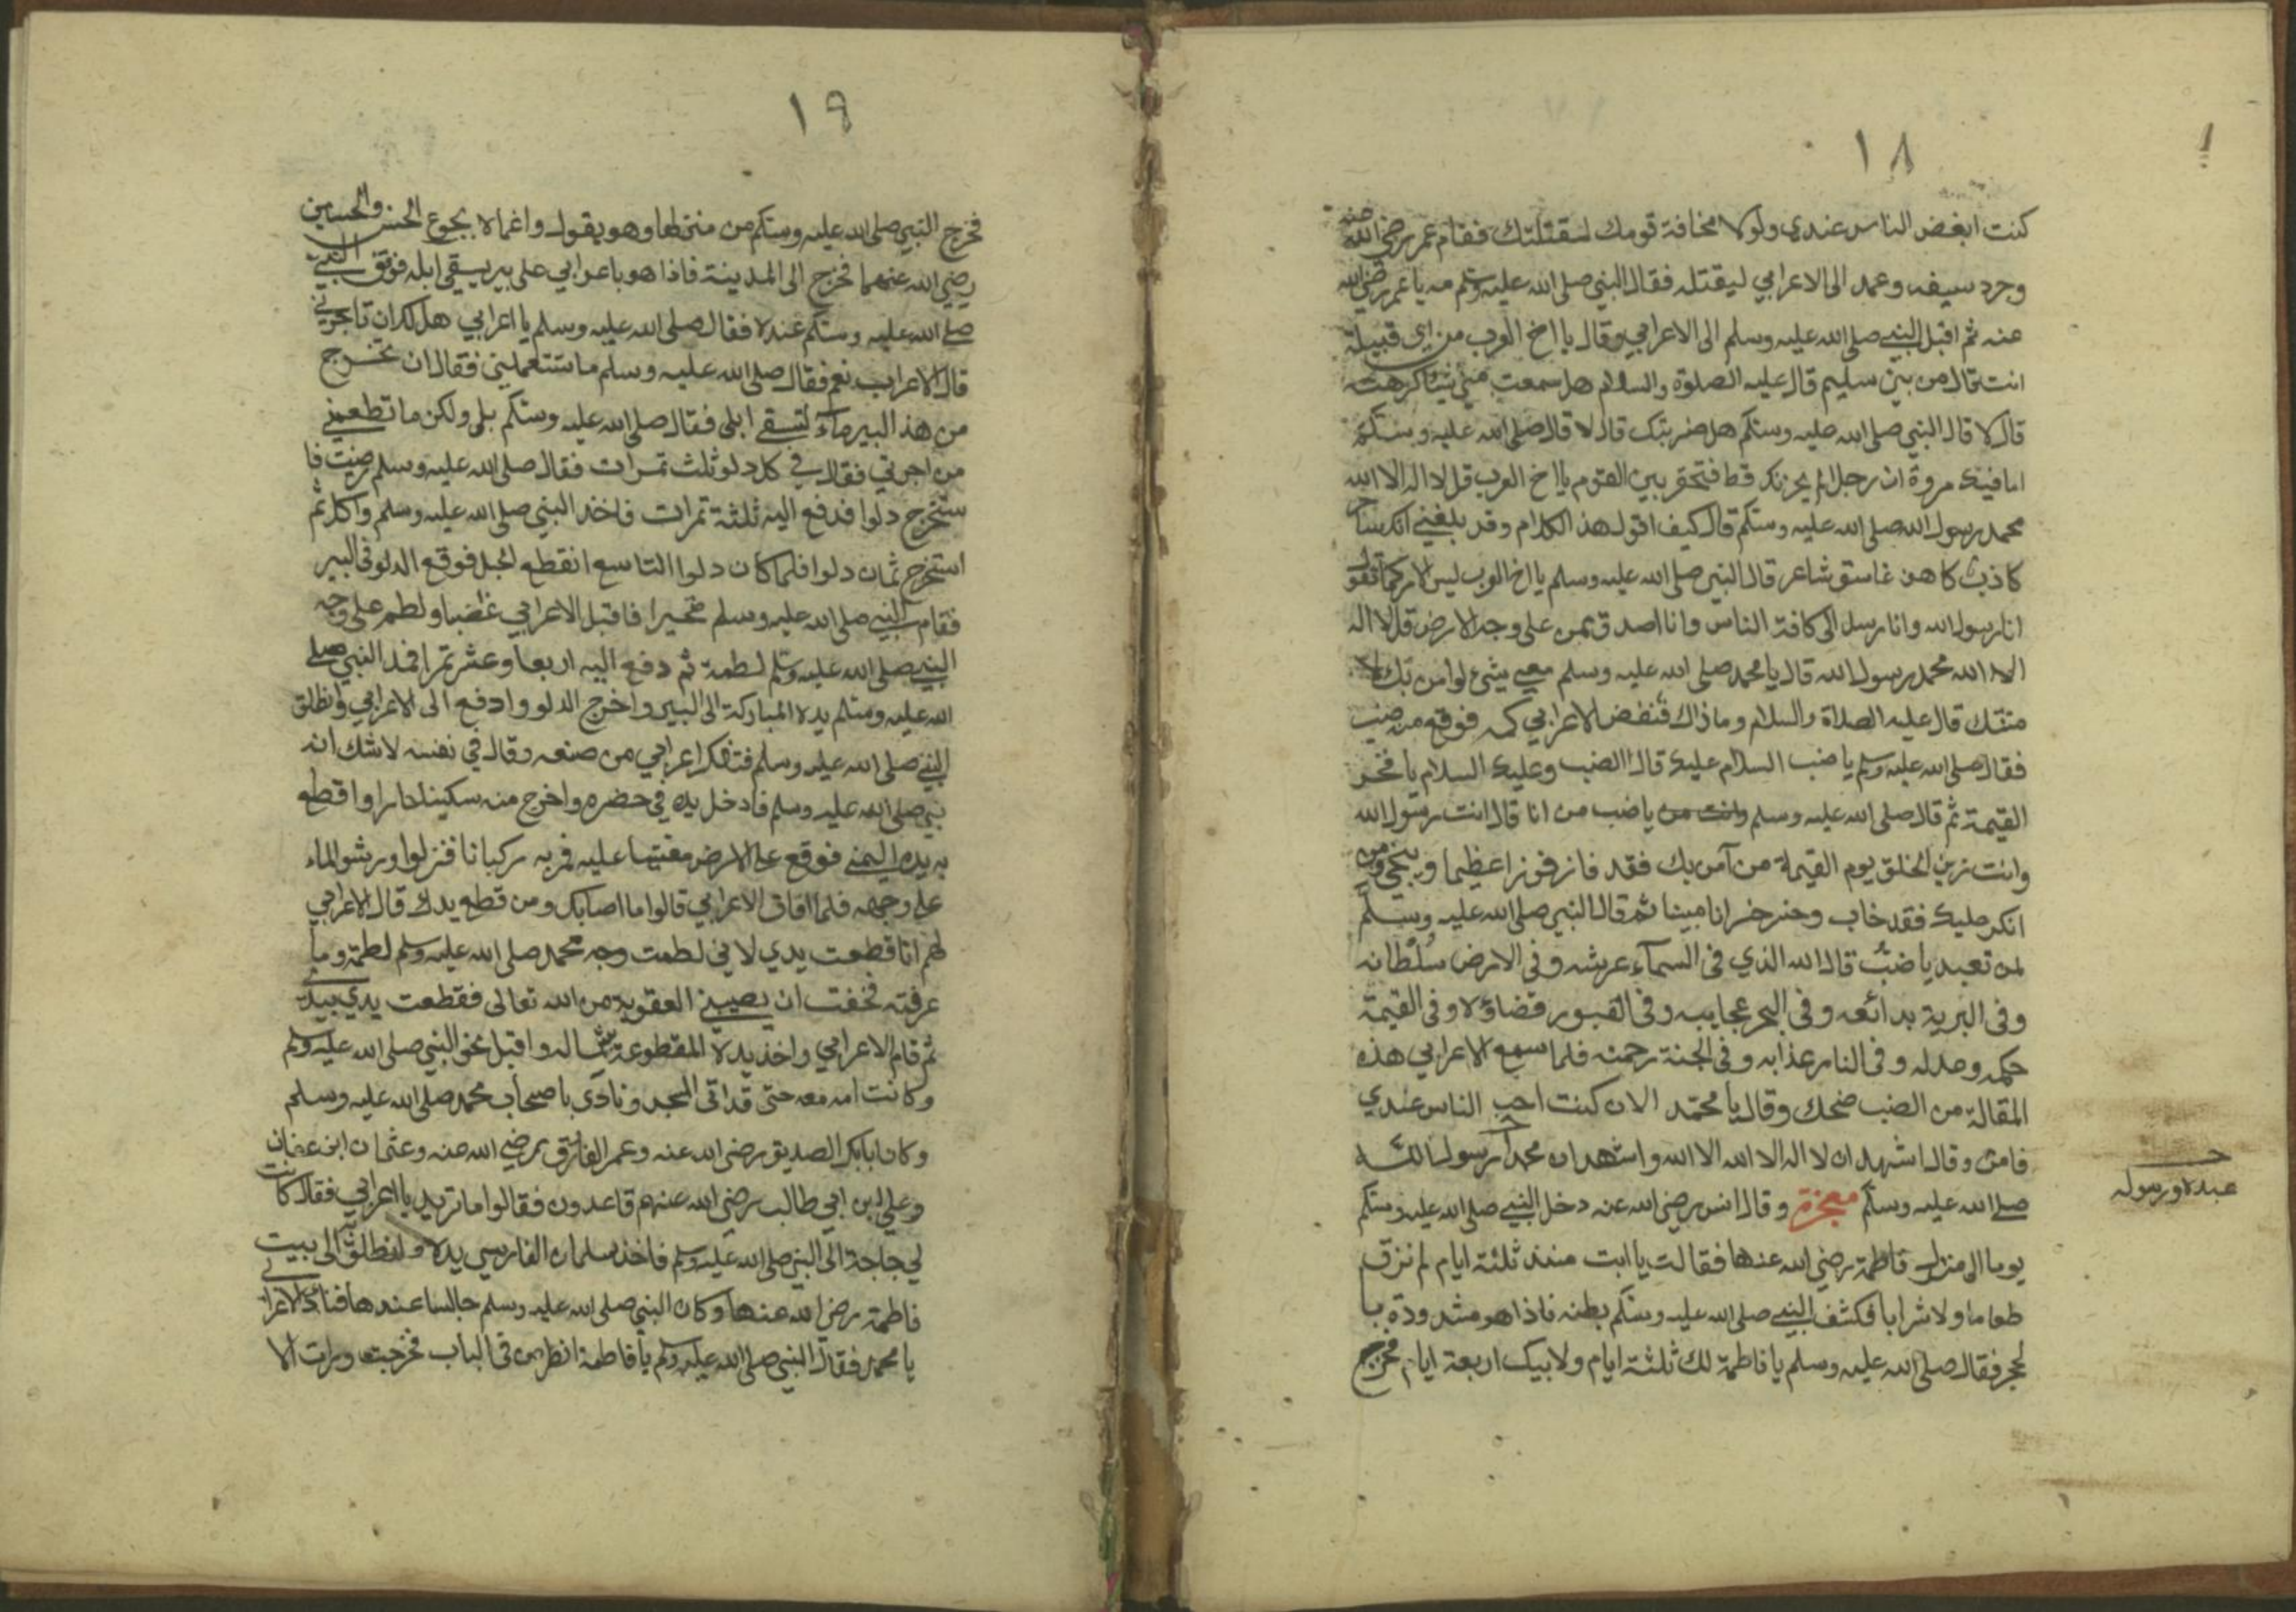 ١٨
كنت ابغض الناس عندي ولولا مخافة قومك لقتلتك فقام عمر رضي الله عنه
وجرد سيفه وعمد الى الاعرابي ليقتله فقال النبي صلى الله عليه وسلم مه يا عمر رضي الله
عنه ثم اقبل النبي صلى الله عليه وسلم الى الاعرابي وقال يا اخ العرب من اي قبيلة
انت قال من بني سليم قال عليه الصلوة والسلام هل سمعت مني شيئا كرهته
قال لا قال النبي صلى الله عليه وسلم هل ضربتك قال لا قال صلى الله عليه وسلم
اما فيك مروة ان رجل لم يحزنك قط فتحقر بين القوم يا اخ العرب قل لا اله الا الله
محمد رسول الله صلى الله عليه وسلم قال كيف اقول هذا الكلام وقد بلغني انك ساحر
كاذب كاهن غاسق شاعر قال النبي صلى الله عليه وسلم يا اخ العرب ليس الامر كما تقول
انا رسول الله وانا رسل الى كافة الناس وانا اصدق بمن على وجه الارض قل لا اله
الا الله محمد رسول الله قال يا محمد صلى الله عليه وسلم معي شيئ لوامن بك لا
منتك قال عليه الصلاة والسلام وما ذاك فنفض الاعرابي كمه فوقع من ضب
فقال صلى الله عليه وسلم يا ضب السلام عليك قال الضب وعليك السلام يا فخر
القيمة ثم قال صلى الله عليه وسلم وانت من يا ضب من انا قال انت رسول الله
وانت زين الخلق يوم القيمة من آمن بك فقد فاز فوزا عظيما وينجي ومن
انكر عليك فقد خاب وخسر خسرانا مبينا ثم قال النبي صلى الله عليه وسلم
لمن تعبد يا ضب قال الله الذي في السماء عرشه وفي الارض سلطانه
وفي البرية بدائعه وفي البحر عجايبه وفي القبور قضاؤه وفي القيمة
حكمه وعدله وفي النار عذابه وفي الجنة رحمته فلما سمع الاعرابي هذه
المقالة من الضب ضحك وقال يا محمد الان كنت احب الناس عندي
فامن وقال اشهد ان لا اله الا الله الا الله واشهد ان محمدا رسول الله
صلى الله عليه وسلم معجزة وقال انس رضي الله عنه دخل النبي صلى الله عليه وسلم
يوما الى منزل فاطمة رضي الله عنها فقالت يا ابت منذ ثلثة ايام لم نزق
طعاما ولا شرابا فكشف النبي صلى الله عليه وسلم بطنه فاذا هو مشدودة با
لحجر فقال صلى الله عليه وسلم يا فاطمة لك ثلثة ايام ولابيك اربعة ايام فخرج
عبده ورسوله
١٩
فخرج النبي صلى الله عليه وسلم من منزلها وهو يقول واغماه بجوع الحسن والحسين
رضي الله عنهما فخرج الى المدينة فاذا هو باعرابي على بير يسقي ابله فوقف النبي
صلى الله عليه وسلم عنده فقال صلى الله عليه وسلم يا اعرابي هل لك ان تاجرني
قال الاعراب نعم فقال صلى الله عليه وسلم ما تستعملني فقال ان تخرج
من هذ البير ماء لتسقي ابلي فقال صلى الله عليه وسلم بلى ولكن ما تطعمني
من اجرتي فقال في كل دلو ثلث تمرات فقال صلى الله عليه وسلم رضيت فا
ستخرج دلوا فدفع اليه ثلثة تمرات فاخذ النبي صلى الله عليه وسلم واكل ثم
استخرج ثمان دلوا فلما كان دلوا التاسع انقطع لحبل فوقع الدلو في البير
فقام النبي صلى الله عليه وسلم متحيرا فاقبل الاعرابي غضبا ولطم على وجه
النبي صلى الله عليه وسلم لطمة ثم دفع اليه اربعا وعشر تمرا فمد النبي صلى
الله عليه وسلم يده المباركة الى البير واخرج الدلو وادفع الى الاعرابي وانطلق
النبي صلى الله عليه وسلم فتفكر اعرابي من صنعه وقال في نفسه لا شك انه
نبي صلى الله عليه وسلم فادخل يده في حضره واخرج منه سكينا حارا واقطع
به يده اليمنى فوقع على الارض مغشيا عليه فمر به ركبانا فنزلوا ورشوا الماء
على وجهه فلما افاق الاعرابي قالوا ما اصابك ومن قطع يدك قال الاعرابي
لهم انا قطعت يدي لاني لطمت وجه محمد صلى الله عليه وسلم لطمة وما
عرفته فخفت ان يصيبني العقوبة من الله تعالى فقطعت يدي بيدي
ثم قام الاعرابي واخذ يده المقطوعة بشماله واقبل نحو النبي صلى الله عليه وسلم
وكانت امه معه حتى قد اتى المسجد ونادى يا صحاب محمد صلى الله عليه وسلم
وكان ابا بكر الصديق رضي الله عنه وعمر الفارق رضي الله عنه وعثمان ابن عفان
وعلي ابن ابي طالب رضي الله عنهم قاعدون فقالوا ما تريد يا اعرابي فقال كانت
لي حاجة الى النبي صلى الله عليه وسلم فاخذ سلمان الفارسي يده وانطلق الى بيت
فاطمة رضي الله عنها وكان النبي صلى الله عليه وسلم جالسا عندها فنادى الاعرابي
يا محمد فقال النبي صلى الله عليه وسلم يا فاطمة انظر من في الباب فخرجت ورات الا